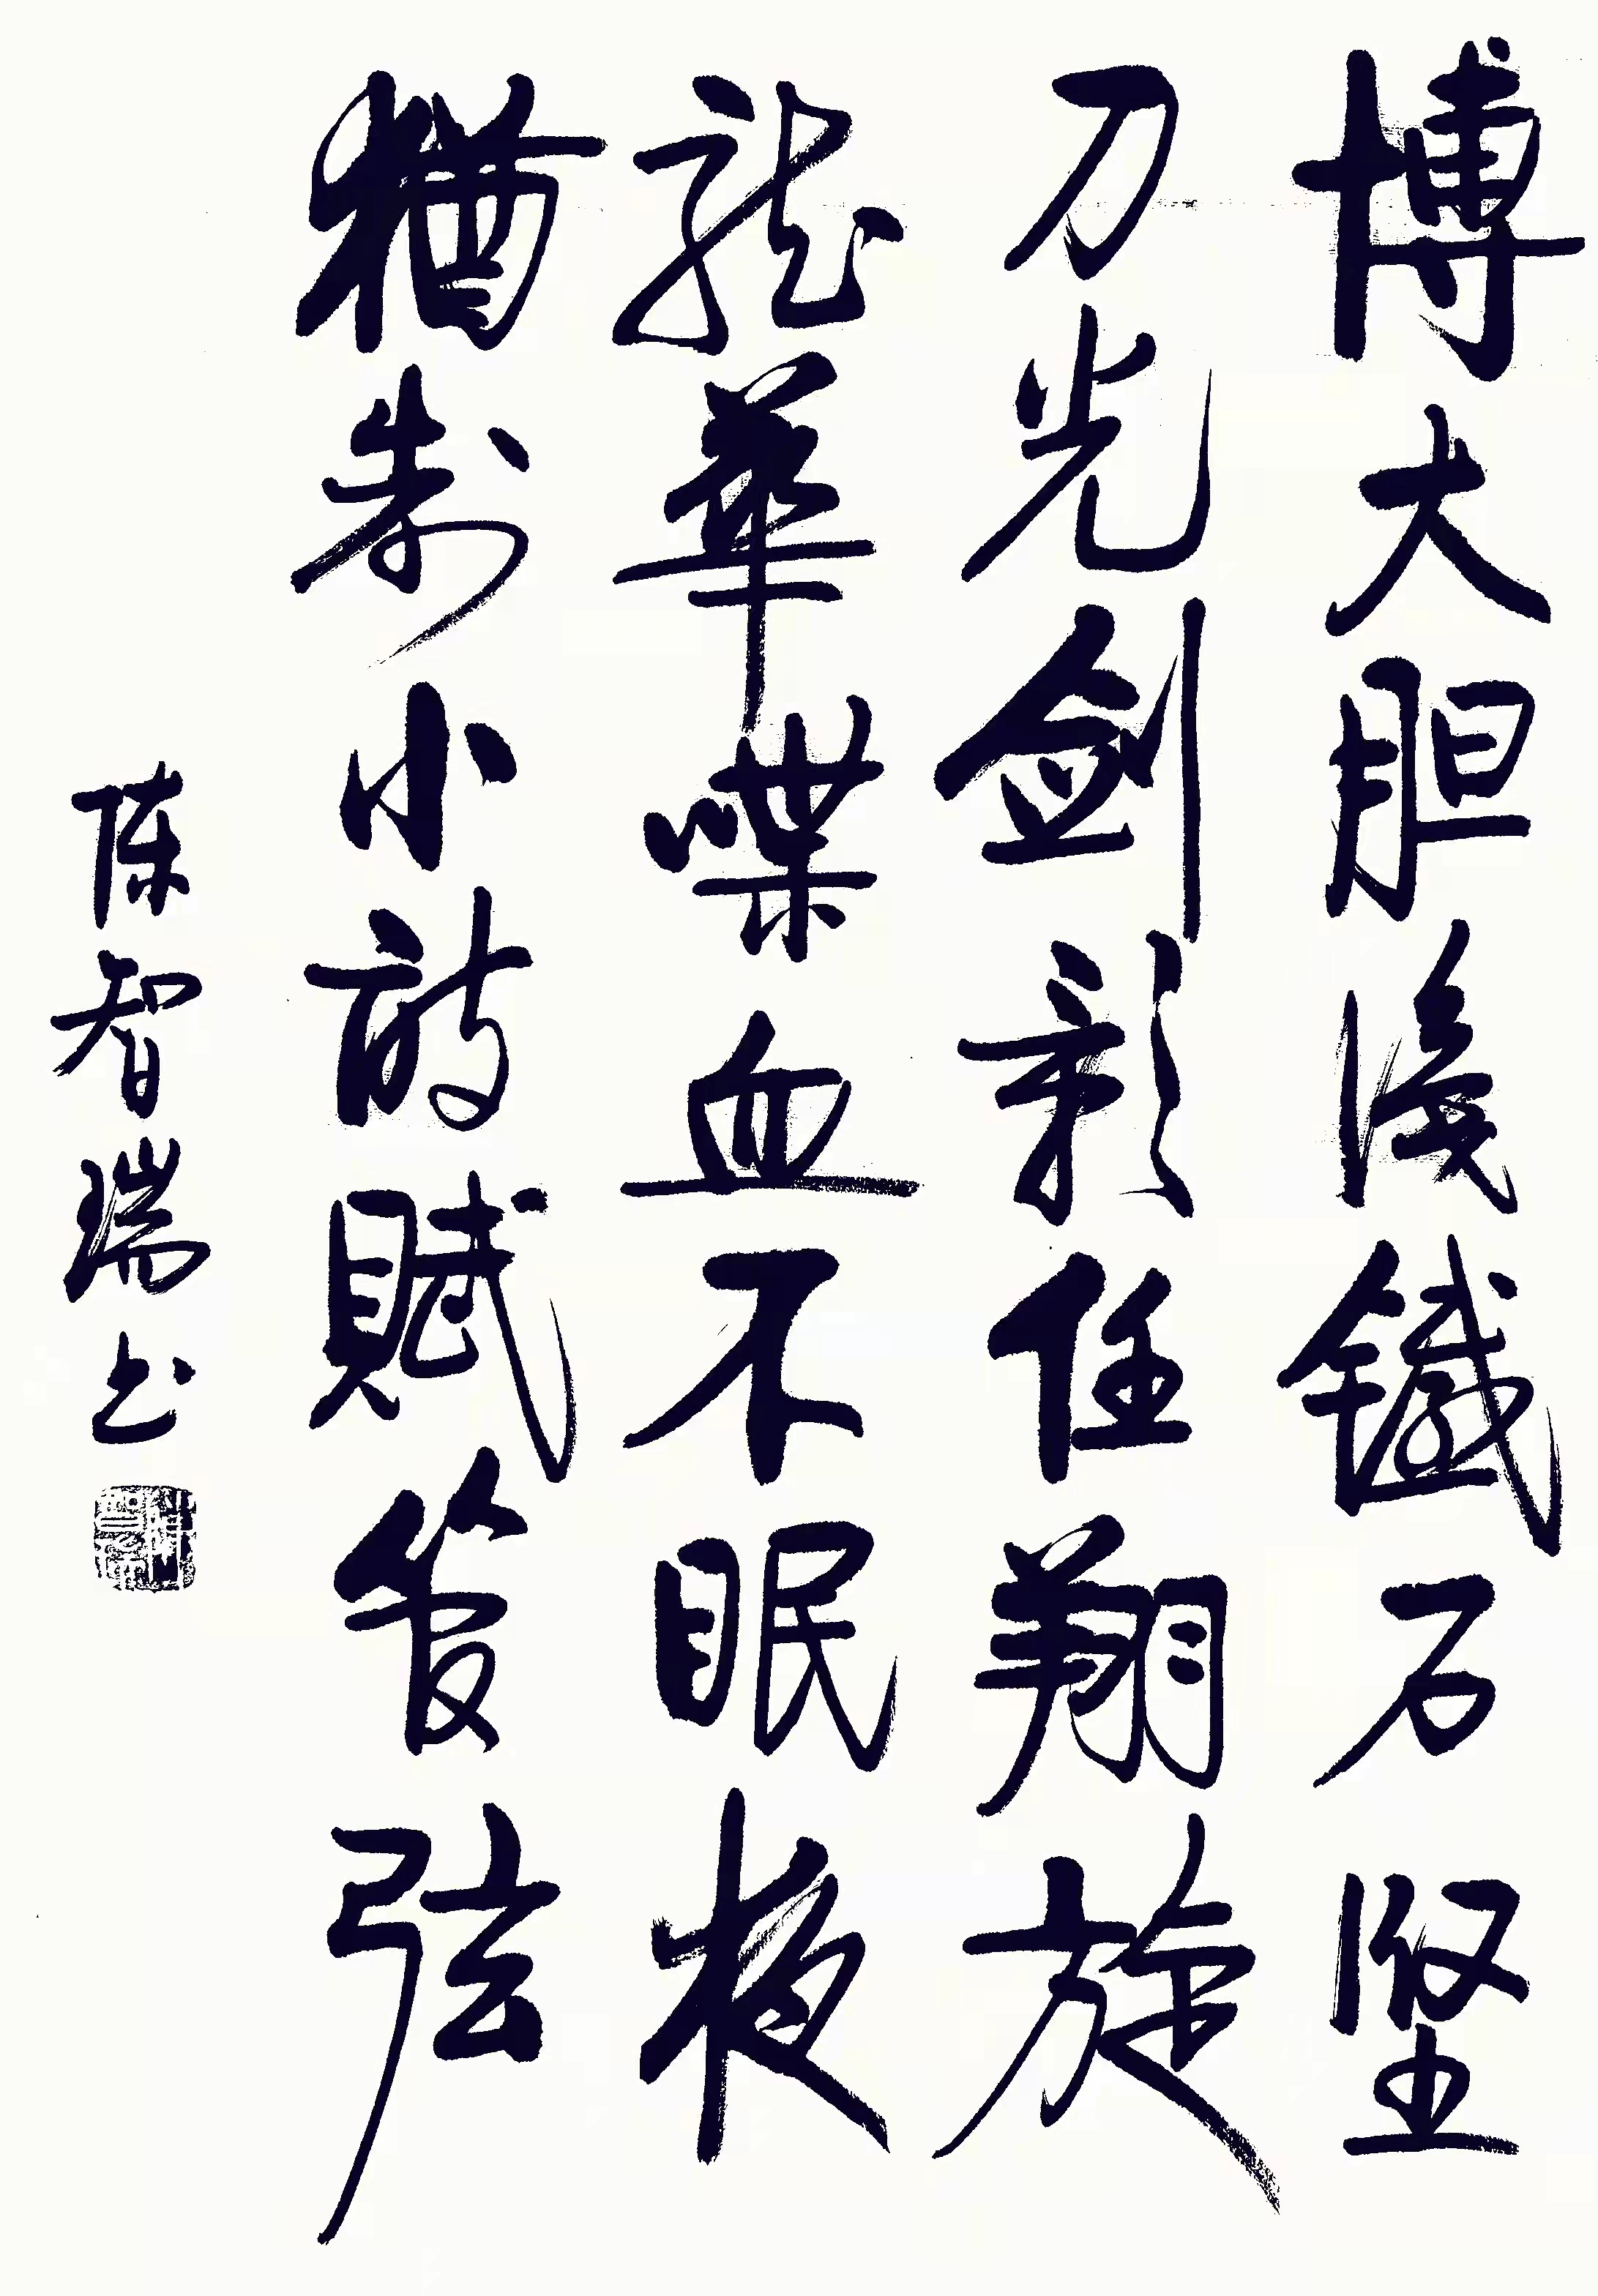 博大胆识鐵石坚
刀光剑影任翔旋
龙華喋血不眠夜
犹制小詩賦管弦
陈智瑞书